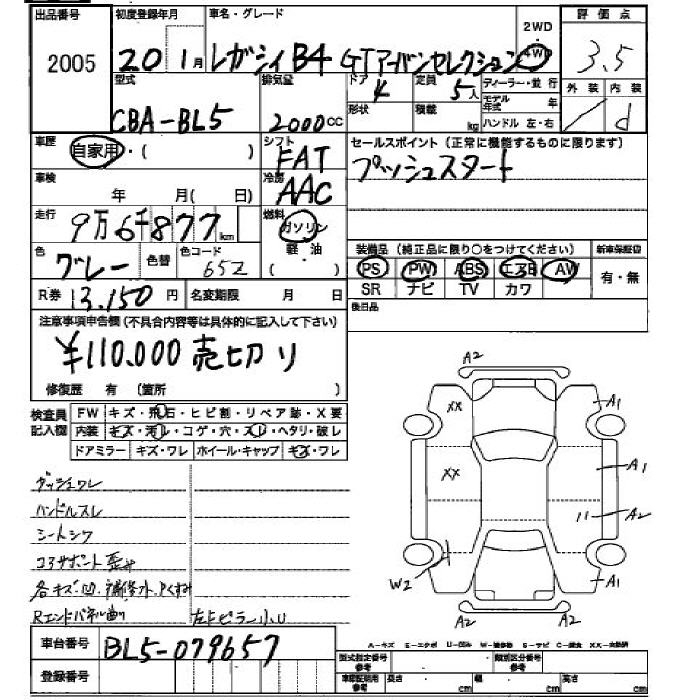 出品番号 初度登録年月 車名・グレード 2WD 評価点
2005 20 1月 レガシィB4 GTアーバンセレクション 4WD 3.5
型式 排気量 ドア 定員 ディーラー・並行 外装 内装
CBA-BL5 2000cc 4 5人 モデル年式 年 / d
形状 積載 kg ハンドル 左・右
車歴 自家用・( ) シフト FAT セールスポイント(正常に機能するものに限ります)
車検 年 月( 日) 冷房 AAC プッシュスタート
走行 9万6千877km 燃料 ガソリン
軽・油
( )
色 グレー 色替 色コード 652 装備品(純正品に限り○をつけてください) 新車保証書
PS PW ABS エアB AW 有・無
R券 13,150円 名変期限 月 日 SR ナビ TV カワ
後日品
注意事項申告欄(不具合内容等は具体的に記入して下さい)
¥110,000 売切り
修復歴 有 (箇所 )
検査員記入欄 FW キズ・飛石・ヒビ割・リペア跡・X要
内装 キズ・汚レ・コゲ・穴・スレ・ヘタリ・破レ
ドアミラー キズ・ワレ ホイール・キャップ キズ・ワレ
A2
XX A1
XX A1
A2
W2 A1
A2 A2
ダッシュワレ
ハンドルスレ
シートシワ
コアサポート歪み
各キズ凹、補修跡、クスミ
Rエンドパネル曲り 左Fピラー小U
車台番号 BL5-079657
登録番号
型式指定番号 類別区分番号
長さ cm 幅 cm 高さ cm